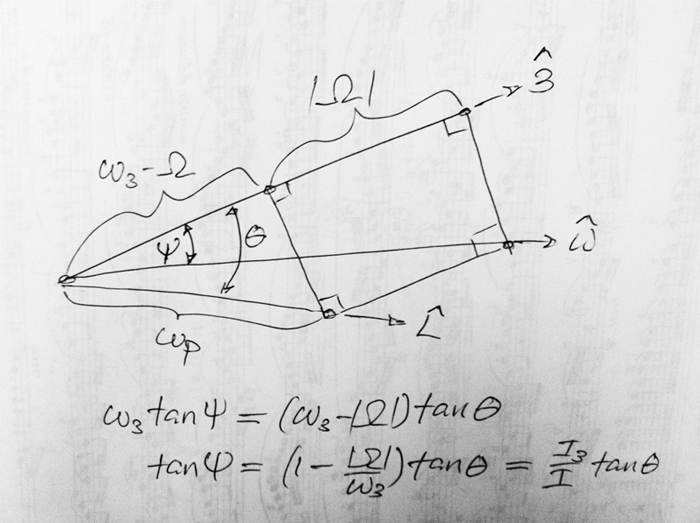 |Ω|
3̂
ω₃-Ω
Ψ
θ
ω̂
ωₚ
L̂
ω₃tanΨ = (ω₃-|Ω|)tanθ
tanΨ = (1 - |Ω|/ω₃)tanθ = I₃/I tanθ